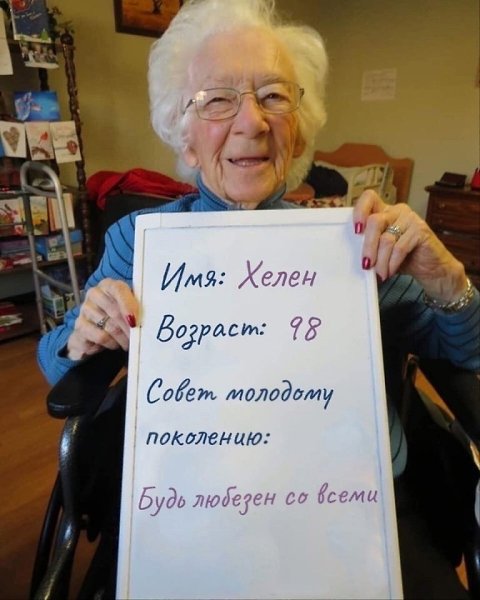 Имя: Хелен
Возраст: 98
Совет молодому
поколению:
Будь любезен со всеми